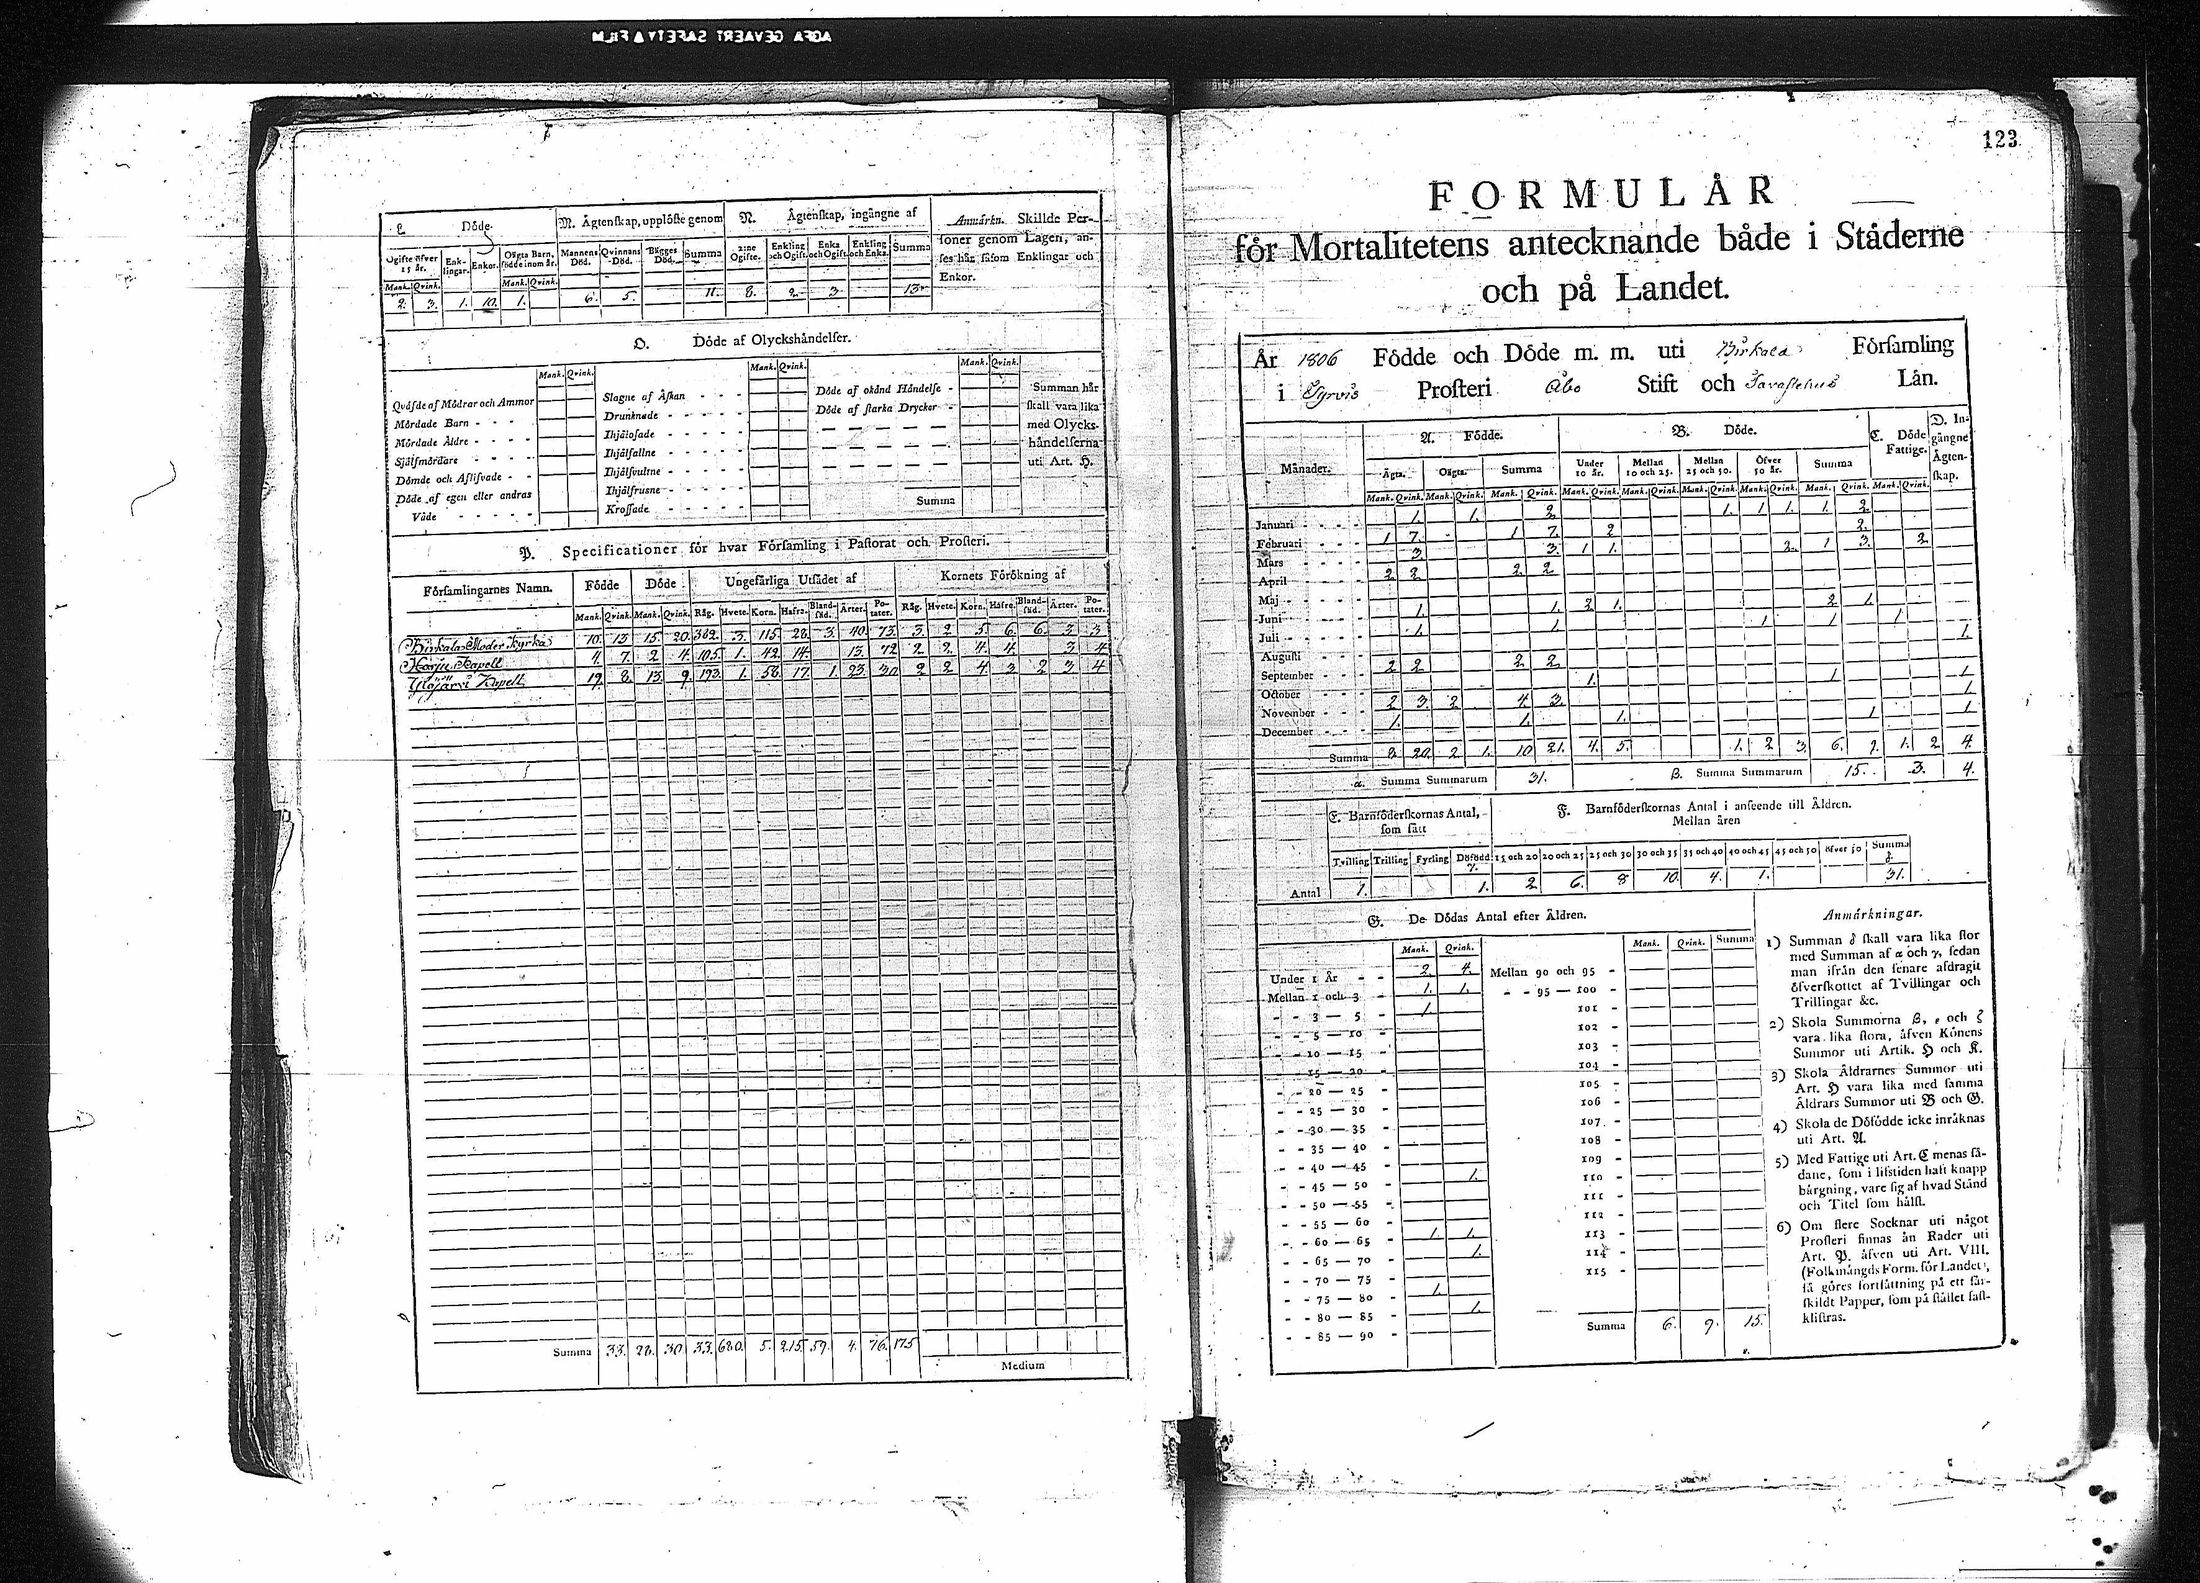 AGFA GEVAERT SAFETY FILM
L Döde.
M. Ägtenskap, upplöste genom
N. Ägtenskap, ingångne af
Anmärkn. Skillde Per-
soner genom Lagen, an-
ses här såsom Enklingar och
Enkor.
Ogifte öfver 15 år. Enk-lingar. Enkor. Oägta Barn, födde inom år. Mannens Död. Qvinnans Död. Bägges Död. Summa 2:ne Ogifte. Enkling och Ogift. Enka och Ogift. Enkling och Enka. Summa
Mank. Qvink. Mank. Qvink.
2. 3. 1. 10. 1. 6. 5. 11. 8. 2. 3. 13.
O. Döde af Olyckshändelser.
Mank. Qvink. Mank. Qvink. Mank. Qvink.
Qväfde af Mödrar och Ammor
Mördade Barn - - - -
Mördade Äldre - - - -
Självmördare - - - -
Dömde och Aflifvade - -
Döde af egen eller andras
Våde - - - - -
Slagne af Åskan - - -
Drunknade - - - - -
Ihjälosade - - - - -
Ihjälfallne - - - - -
Ihjälsvultne - - - -
Ihjälfrusne - - - - -
Krossade - - - - -
Döde af okänd Händelse -
Döde af starka Drycker -
Summa
Summan här
skall vara lika
med Olycks-
händelserna
uti Art. H.
P. Specificationer för hvar Församling i Pastorat och Prosteri.
Församlingarnes Namn. Födde Döde Ungefärliga Utsädet af Kornets Förökning af
Mank. Qvink. Mank. Qvink. Råg. Hvete. Korn. Hafra. Bland-säd. Ärter. Po-tater. Råg. Hvete. Korn. Hafre. Bland-säd. Ärter. Po-tater.
Birkala Moder Kyrka 10. 13 15. 20. 382. 3. 115. 28. 3. 40. 73. 3. 2. 5. 6. 6. 3 3
Harju Kapell 4. 7. 2 4. 105. 1. 42. 14. 13. 72 2. 2. 4. 4. 3 4
Ylöjärvi Kapell 19. 8. 13. 9. 193. 1. 58. 17. 1. 23. 30. 2 2 4. 3 2 3. 4
Summa 33. 28. 30. 33. 680. 5. 215. 59. 4. 76. 175
Medium
123
FORMULÅR
för Mortalitetens antecknande både i Städerne
och på Landet.
År 1806 Födde och Döde m. m. uti Birkala Församling
i Tyrvis Prosteri Åbo Stift och Tavastehus Län.
Månader. A. Födde. B. Döde. C. Döde Fattige. D. In-gångne Ägten-skap.
Ägta. Oägta. Summa Under 10 år. Mellan 10 och 25. Mellan 25 och 50. Öfver 50 år. Summa
Mank. Qvink. Mank. Qvink. Mank. Qvink. Mank. Qvink. Mank. Qvink. Mank. Qvink. Mank. Qvink. Mank. Qvink. Mank. Qvink.
Januari - - - - 1. 1. 2. 1. 1 1. 1. 2.
Februari - - - 1 7. 1 7. 2 2.
Mars - - - - 3. 3. 1 1. 2. 1 3. 2
April - - - - 2 2 2. 2
Maj - - - -
Juni - - - - 1. 1. 2 1. 2 1.
Juli - - - - 1. 1. 1 1 1 1.
Augusti - - -
September - - - 2 2 2 2
October - - - 1. 1 1
November - - - 2 3. 2 4. 3. 1
December - - - 1. 1. 1. 1 1
Summa 8. 20. 2 1. 10 21. 4. 5. 1. 2 3 6. 9. 1. 2 4.
α. Summa Summarum 31. β. Summa Summarum 15. 3. 4.
E. Barnföderskornas Antal, som fått
F. Barnföderskornas Antal i anseende till Åldren.
Mellan åren
Tvilling Trilling Fyrling Döfödd γ. 15 och 20 20 och 25 25 och 30 30 och 35 35 och 40 40 och 45 45 och 50 öfver 50 Summa δ.
Antal 1. 1. 2 6. 8 10. 4. 1. 31.
G. De Dödas Antal efter Åldren.
Mank. Qvink. Mank. Qvink. Summa
Under 1 År - - 2. 4. Mellan 90 och 95 -
Mellan 1 och 3 - 1. 1. - - 95 — 100 -
- - 3 — 5 - 1. 101 -
- - 5 — 10 - 102 -
- - 10 — 15 - 103 -
- - 15 — 20 - 104 -
- - 20 — 25 - 105 -
- - 25 — 30 - 106 -
- - 30 — 35 - 107 -
- - 35 — 40 - 108 -
- - 40 — 45 - 109 -
- - 45 — 50 - 1. 110 -
- - 50 — 55 - 111 -
- - 55 — 60 - 112 -
- - 60 — 65 - 1. 1. 113 -
- - 65 — 70 - 1. 114 -
- - 70 — 75 - 115 -
- - 75 — 80 - 1.
- - 80 — 85 - 1.
- - 85 — 90 - Summa 6. 9. 15.
Anmärkningar.
1) Summan δ skall vara lika stor
med Summan af α och γ, sedan
man ifrån den senare afdragit
öfverskottet af Tvillingar och
Trillingar &c.
2) Skola Summorna β, ε och ζ
vara lika stora, äfven Könens
Summor uti Artik. H och K.
3) Skola Åldrarnes Summor uti
Art. H vara lika med samma
Åldrars Summor uti B och G.
4) Skola de Döfödde icke inräknas
uti Art. A.
5) Med Fattige uti Art. C menas så-
dane, som i lifstiden haft knapp
bärgning, vare sig af hvad Stånd
och Titel som hälst.
6) Om flere Socknar uti något
Prosteri finnas än Rader uti
Art. P. äfven uti Art. VIII.
(Folkmängds Form. för Landet),
så göres fortsättning på ett sär-
skildt Papper, som på stället fast-
klistras.